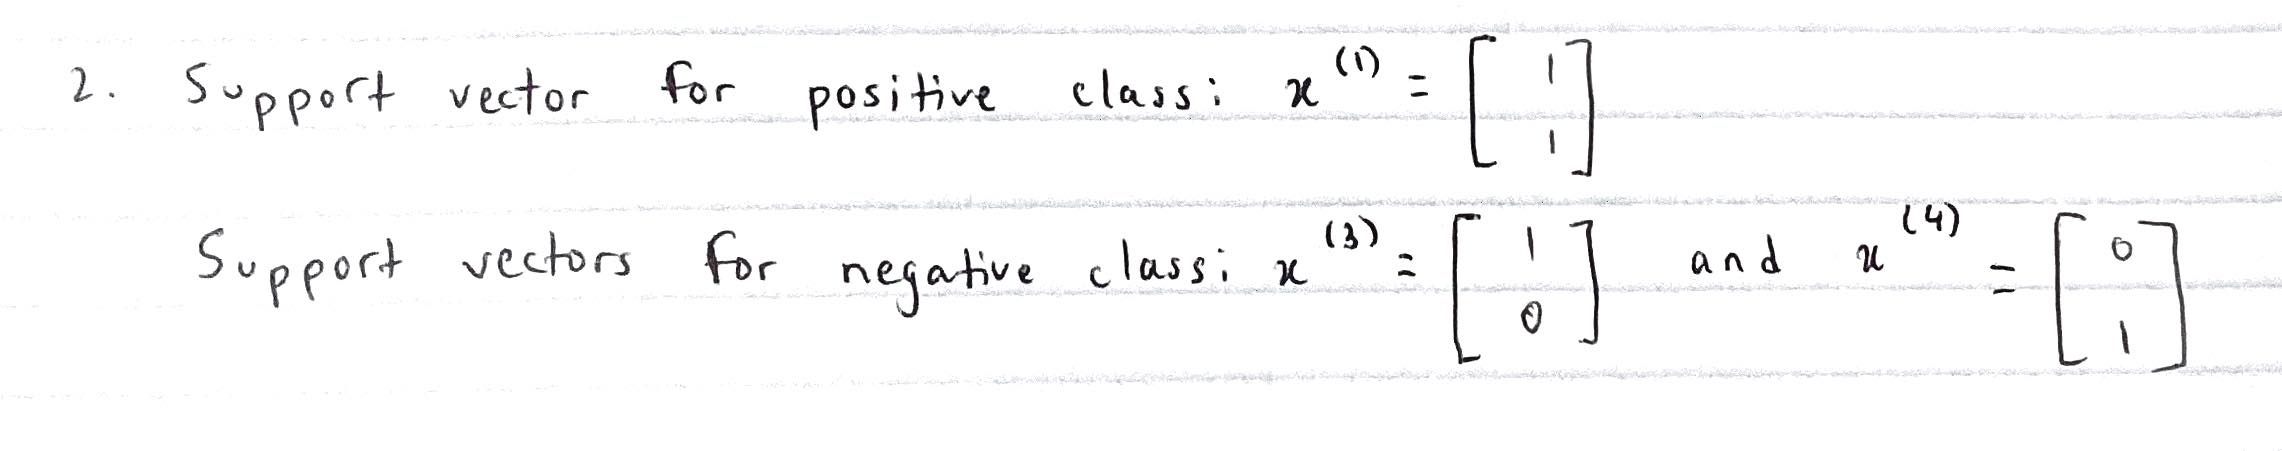 2. Support vector for positive class: x^(1) = [1 1]
Support vectors for negative class: x^(3) = [1 0] and x^(4) = [0 1]